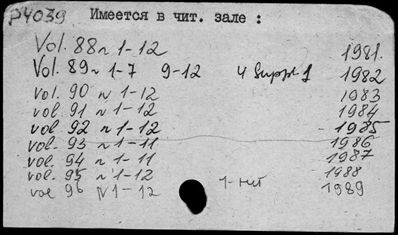 P4039 Имеется в чит. зале :
Vol. 88 n 1-12 1981.
Vol. 89 n 1-7 9-12 4 Suppl 1 1982
vol. 90 n 1-12 1983
vol. 91 n 1-12 1984
vol 92 n 1-12 1985
vol. 93 n 1-11 1986
vol. 94 n 1-11 1987
vol. 95 n 1-12 1988
vol 96 N 1-12 1989